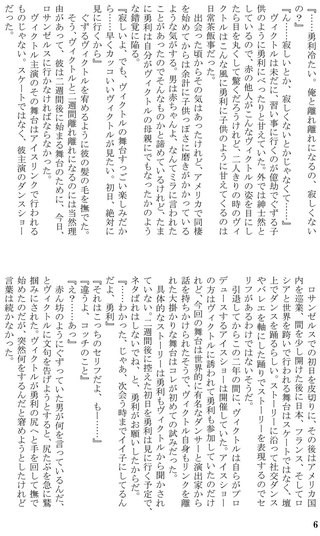 「……勇利冷たい。俺と離れ離れになるの、寂しくない
の？」
「ん……寂しいとか、寂しくないとかじゃなくて……」
ヴィクトルは未だに、習い事に行くのが億劫でぐずる子
供のように勇利にべったりと甘えていた。外では紳士然と
しているので、赤の他人がこんなヴィクトルの姿を目にし
たら目を丸くして驚くだろうけれど、二人きりの時のヴィ
クトルはこんな風に勇利に子供のように甘えてくるのは
日常茶飯事だった。
出会った頃からその気はあったけれど、アメリカで同棲
を始めてからは余計に子供っぽさに磨きがかかっている
ような気がする。男は赤ちゃんよ、なんてミラに言われた
ことがあったのでそんなものかと諦めているけれど、たま
に勇利は自分がヴィクトルの母親にでもなったかのよう
な錯覚に陥る。
「寂しいよ。でも、ヴィクトルの舞台すっごい楽しみだか
ら……早くカッコいいヴィクトルが見たい。初日、絶対に
見に行くから」
ぐずるヴィクトルを宥めるように彼の髪の毛を撫でた。
そう、ヴィクトルと二週間離れ離れになるのには当然理
由があって、彼は二週間後に始まる舞台のために、今日、
ロサンゼルスに行かなければならなかった。
ヴィクトル主演のその舞台はアイスリンクで行われる
ものじゃない。スケートではなく、彼主演のダンスショー
ロサンゼルスでの初日を皮切りに、その後はアメリカ国
内を巡業、間を少し開けた後に日本、フランス、そしてロ
シアと世界を跨いで行われる舞台はスケートではなく、壇
上でダンスを踊るらしい。ストーリーに沿って社交ダンス
やバレエを軸にした踊りでストーリーを表現するのでセ
リフがあるわけではないそうだ。
引退してからこの二年の間に、ヴィクトルは自らがプロ
デュースするアイスショーは開催した。アイスショー
の方はヴィクトルに誘われて勇利も参加していたのだけ
れど、今回の舞台は世界的に有名なダンサーと演出家から
話を持ちかけられたそうで、ヴィクトル自身もリンクを離
れた大掛かりな舞台はコレが初めての試みだった。
具体的なストーリーは勇利もヴィクトルから聞かされ
ていない。二週間後に控えた初日を勇利は見に行く予定で、
ネタばれはしないでね、と、勇利がお願いしたからだ。
「……わかった。じゃあ、次会う時までイイ子にしてるん
だよ、勇利」
「それはこっちのセリフだよ、も……」
「違うよ。コッチのこと」
「え？……あっ」
赤ん坊のようにぐずっていた男が何を言っているんだ、
とヴィクトルに文句を告げようとすると、尻たぶを急に鷲
掴みにされた。ヴィクトルが勇利の尻へと手を回して撫で
始めたのだが、突然何をするんだと窘めようとしたけれど
言葉は続かなかった。
6